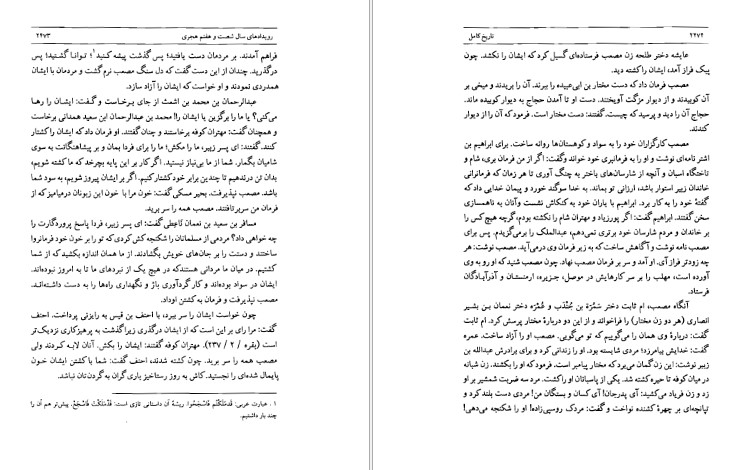 ۲۴۷۲ تاریخ کامل
عایشه دختر طلحه زن مصعب فرستاده‌ای گسیل کرد که ایشان را نکشد. چون
پیک فراز آمد، ایشان را کشته دید.
مصعب فرمان داد که دست مختار بن ابی‌عبیده را ببرند. آن را بریدند و میخی بر
آن کوبیدند و از دیوار مزگت آویختند. دست او تا آمدن حجاج به دیوار کوبیده ماند.
حجاج آن را دید و پرسید که چیست. گفتند: دست مختار است. فرمود که آن را از دیوار
کندند.
مصعب کارگزاران خود را به سواد و کوهستان‌ها روانه ساخت. برای ابراهیم بن
اشتر نامه‌ای نوشت و او را به فرمانبری خود خواند و گفت: اگر از من فرمان بری، شام و
تاختگاه اسبان و آنچه از شارسان‌های باختر به چنگ آوری تا هر زمان که فرمانرانی
خاندان زبیر استوار باشد، ارزانی تو بماند. به خدا سوگند خورد و پیمان خدایی داد که
گفتهٔ خود را به کار برد. ابراهیم با یاران خود به کنکاش نشست و آنان به ناهمسازی
سخن گفتند. ابراهیم گفت: اگر پور زیاد و مهتران شام را نکشته بودم، گرچه هیچ کس را
بر خاندان و مردم شارسان خود برتری نمی‌دهم، عبدالملک را برمی‌گزیدم. پس برای
مصعب نامه نوشت و آگاهش ساخت که به زیر فرمان وی درمی‌آید. مصعب نوشت: هر
چه زودتر فراز آی. او آمد و سر بر فرمان مصعب نهاد. چون مصعب شنید که او رو به وی
آورده است، مهلب را بر سر کارهایش در موصل، جزیره، ارمنستان و آذرآبادگان
فرستاد.
آنگاه مصعب، ام ثابت دختر سَمُرَة بن جُنْدَب و عُمْرَه دختر نعمان بن بشیر
انصاری (هر دو زن مختار) را فراخواند و از این دو دربارهٔ مختار پرسش کرد. ام ثابت
گفت: دربارهٔ وی همان را می‌گوییم که تو می‌گویی. مصعب او را آزاد ساخت. عمره
گفت: خدایش بیامرزد؛ مردی شایسته بود. او را زندانی کرد و برای برادرش عبدالله بن
زبیر نوشت: این زن گمان می‌برد که مختار پیامبر است. فرمود که او را بکشند. زن شبانه
در میان کوفه تا حیره کشته شد. یکی از پاسبانان او را کشت. مرد سه ضربت شمشیر بر او
زد و زن فریاد می‌کشید: آی پدرجان! آی کسان و بستگان من! مردی دست بلند کرد و
تپانچه‌ای بر چهرهٔ کشنده نواخت و گفت: مردک روسپی‌زاده! او را شکنجه می‌دهی!
رویدادهای سال شصت و هفتم هجری ۲۴۷۳
فراهم آمدند. بر مردمان دست یافتید؛ پس گذشت پیشه کنید۱؛ توانا گشتید؛ پس
درگذرید. چندان از این دست گفت که دل سنگ مصعب نرم گشت و مردمان با ایشان
همدردی نمودند و او خواست که ایشان را آزاد سازد.
عبدالرحمان بن محمد بن اشعث از جای برخاست و گفت: ایشان را رها
می‌کنی؟ یا ما را برگزین یا ایشان را! محمد بن عبدالرحمان ابن سعید همدانی برخاست
و همچنان گفت: مهتران کوفه برخاستند و چنان گفتند. او فرمان داد که ایشان را کشتار
کنند. گفتند: ای پسر زبیر، ما را مکش؛ ما را برای فردا بمان و بر پیشاهنگانت به سوی
شامیان بگمار. شما از ما بی‌نیاز نیستید. اگر کار بر این پایه بچرخد که ما کشته شویم،
بدان تن درندهیم تا چندین برابر خود کشتار کنیم. اگر بر ایشان پیروز شویم، به سود شما
باشد. مصعب نپذیرفت. بحیر مسکی گفت: خون مرا با خون این زبونان درمیامیز که از
فرمان من سر برتافتند. مصعب همه را سر برید.
مسافر بن سعید بن نعمان ناعطی گفت: ای پسر زبیر، فردا پاسخ پروردگارت را
چه خواهی داد؟ مردمی از مسلمانان را شکنجه کش کردی که تو را بر خون خود فرمانروا
ساختند و دستت را بر جان‌های خویش بگشادند. از ما همان اندازه بکشید که از شما
کشتیم. در میان ما مردانی هستند که در هیچ یک از نبردهای ما تا به امروز نبوده‌اند.
ایشان در سواد بوده‌اند و کار گردآوری باژ و نگهداری راه‌ها را به دست داشته‌اند.
مصعب نپذیرفت و فرمان به کشتن او داد.
چون خواست ایشان را سر ببرد، با احنف بن قیس به رایزنی پرداخت. احنف
گفت: مرا رای بر این است که از ایشان درگذری زیرا گذشت به پرهیزکاری نزدیک‌تر
است (بقره / ۲ / ۲۳۷). مهتران کوفه گفتند: ایشان را بکش. آنان لابه کردند ولی
مصعب همه را سر برید. چون کشته شدند، احنف گفت: شما با کشتن ایشان خون
پایمال شده‌ای را نجستید. کاش به روز رستاخیز باری گران به گردن‌تان نباشد.
۱ . عبارت عربی: قَدْمَلَکْتُمْ فَاسْجَحُوا. ریشهٔ آن داستانی تازی است: قَدْمَلَکْتَ فَاسْجَحْ. پیش‌تر هم آن را
چند بار داشتیم.